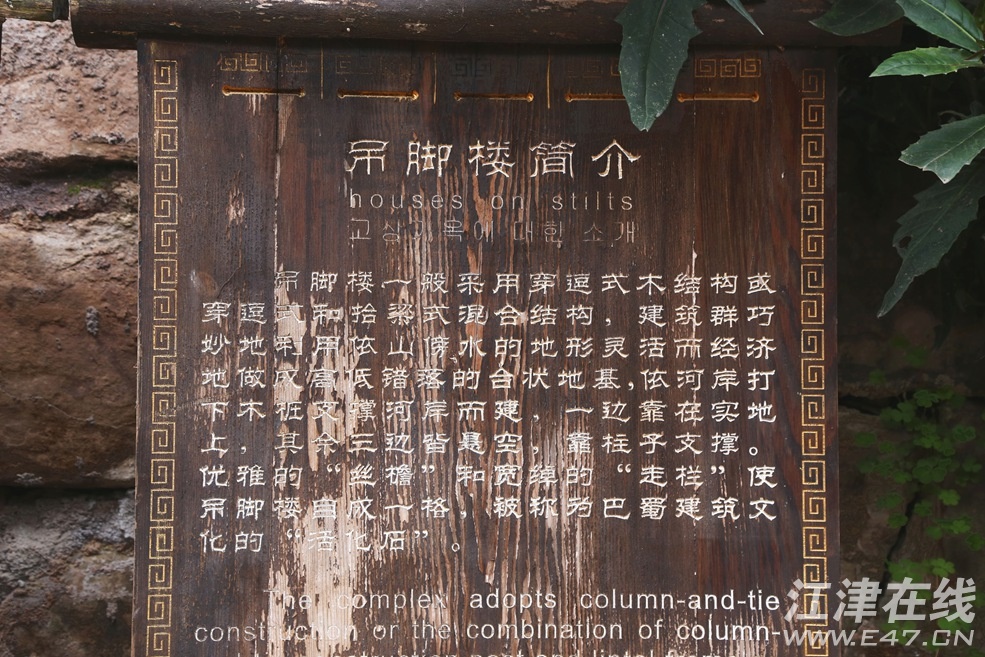 吊脚楼简介
houses on stilts
고상가옥에 대한 소개
吊脚楼一般采用穿逗式,木结构或
穿逗式和抬梁式混合结构,建筑群巧
妙地利用依山傍水的地形,灵活而经济
地做成高低错落的合状地基,依河岸打
下木桩支撑河岸而建,一边靠在实地
上,其余三边皆悬空,靠柱子支撑。
优雅的“丝檐”和宽绰的“走栏”使
吊脚楼自成一格,被称为巴蜀建筑文
化的“活化石”。
The complex adopts column-and-tie
construction or the combination of column-
江津在线
WWW.E47.CN